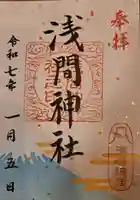 奉拝
浅間神社
令和七年
一月五日